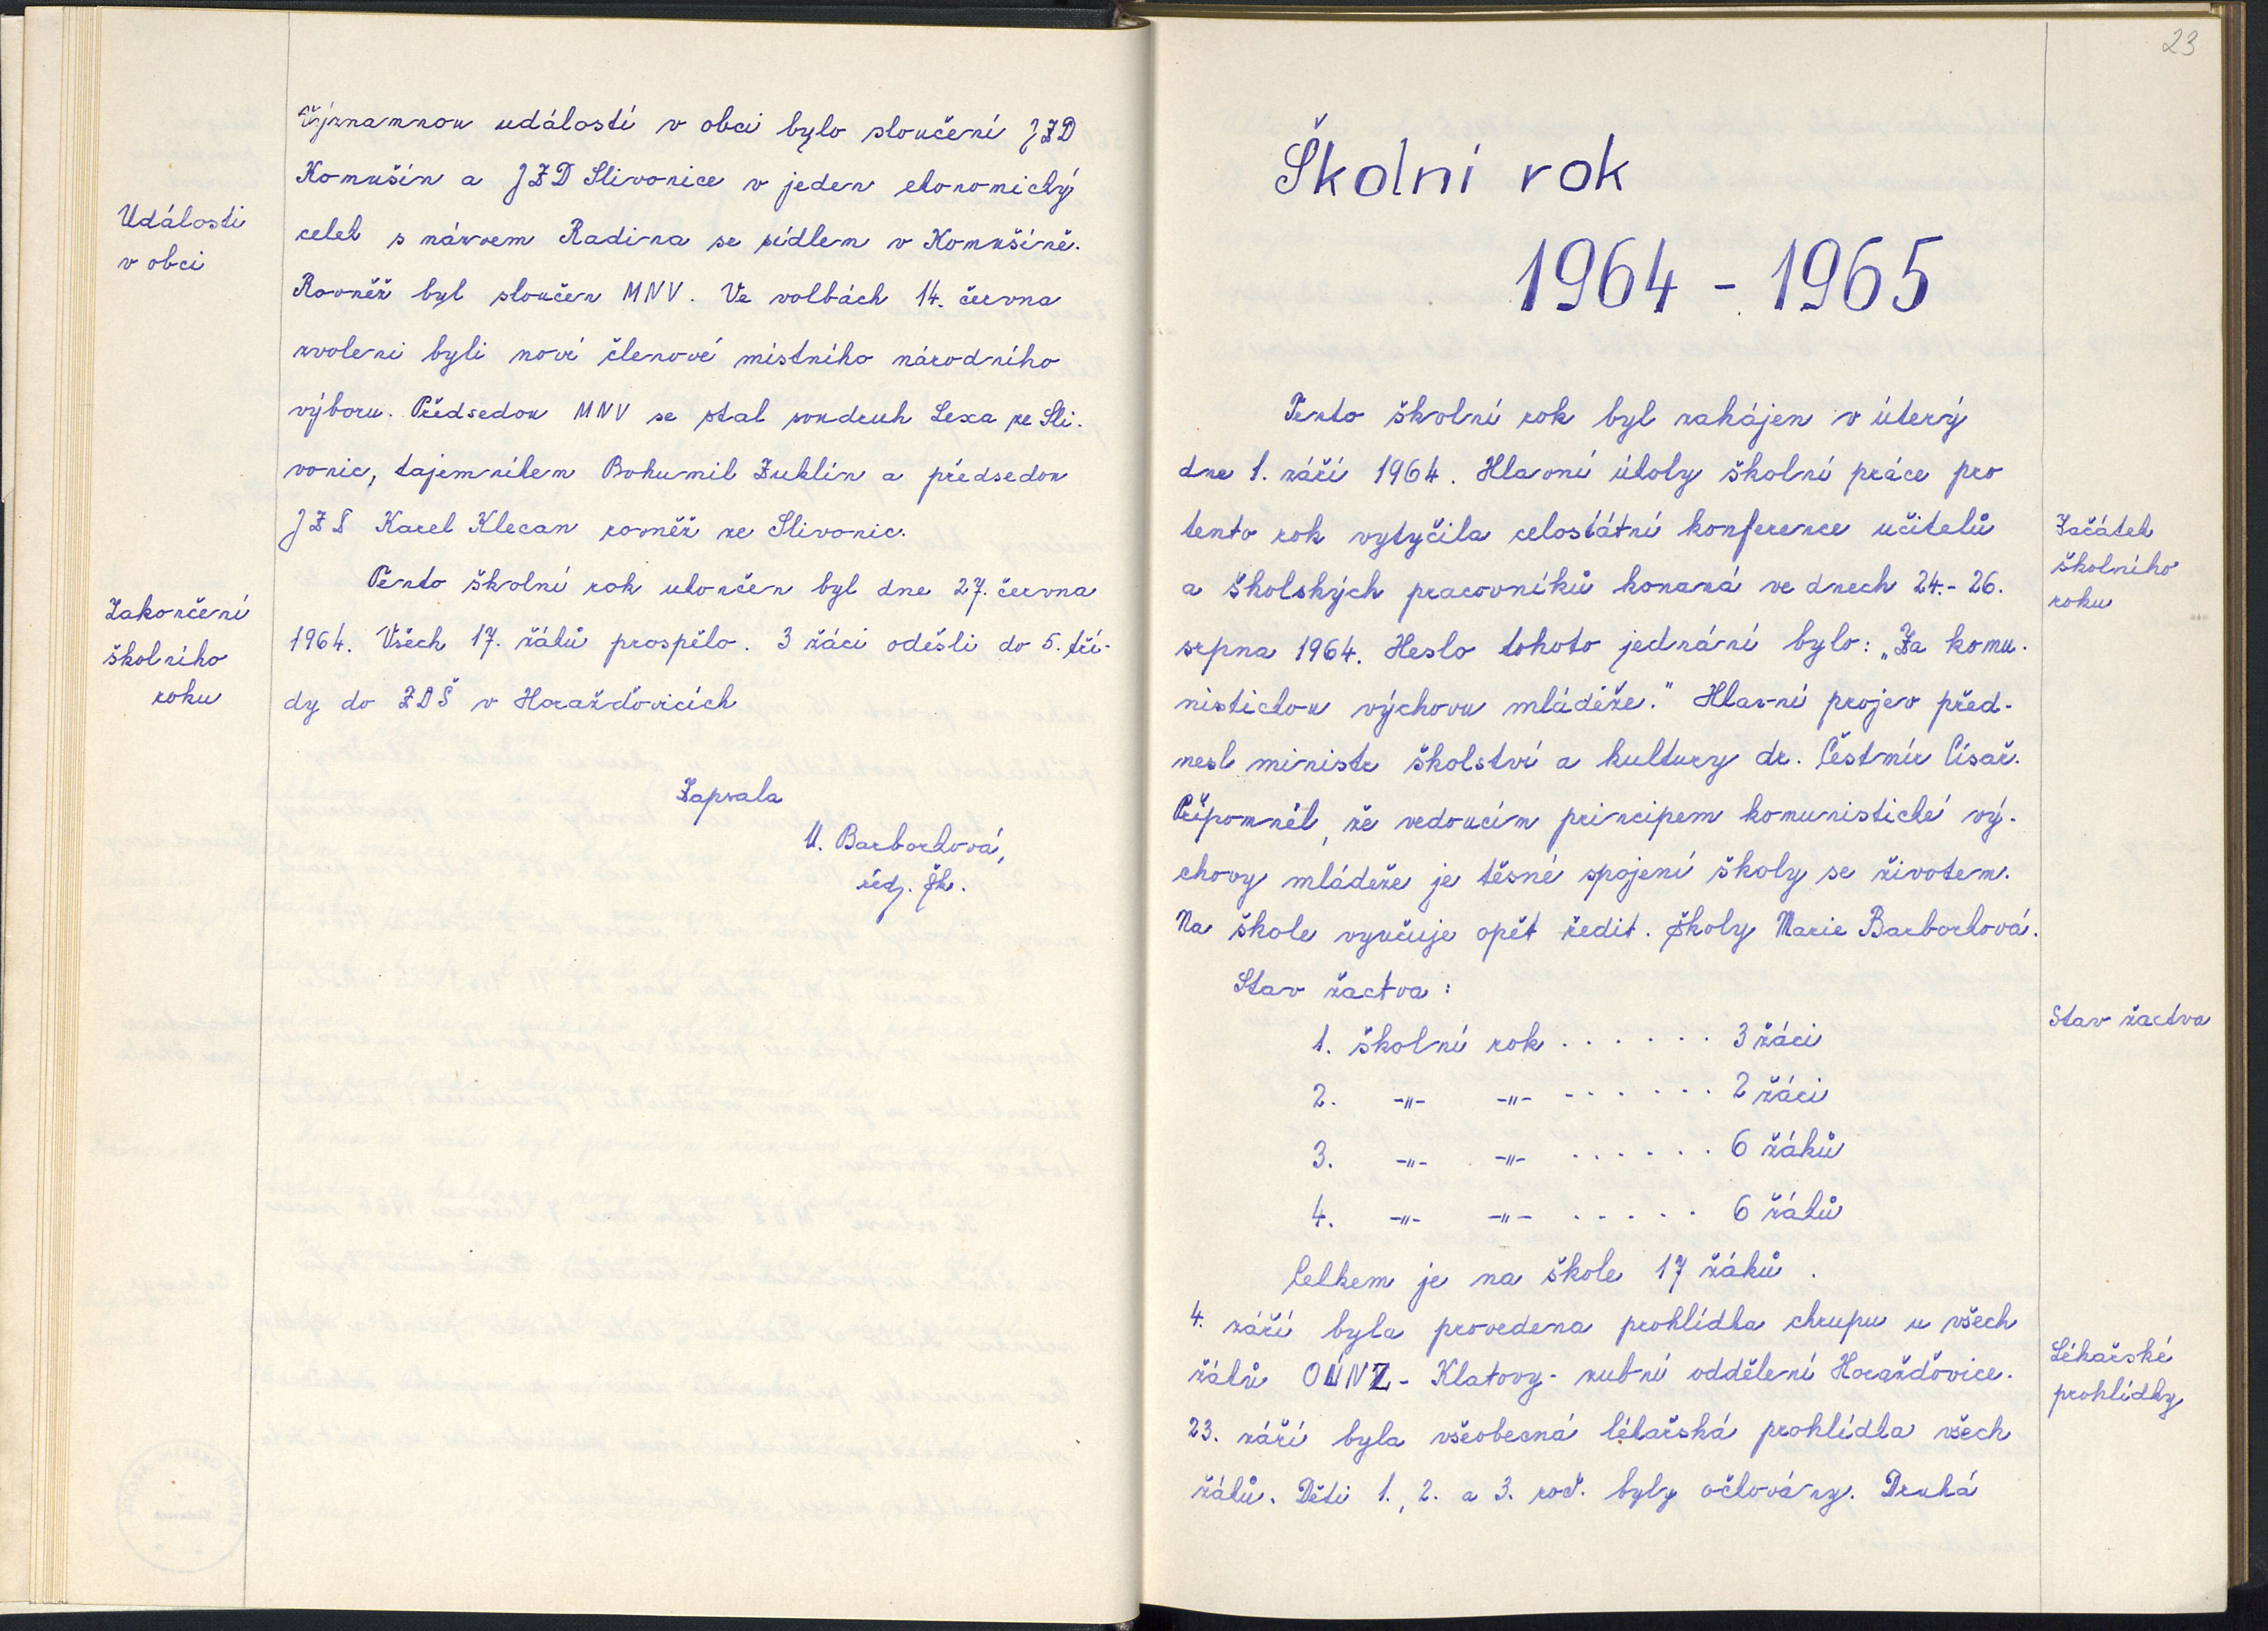 Významnou událostí v obci bylo sloučení JZD
Komušín a JZD Slivonice v jeden ekonomický
celek s názvem Radina se sídlem v Komušíně.
Události
v obci
Rovněž byl sloučen MNV. Ve volbách 14. června
zvoleni byli noví členové místního národního
výboru. Předsedou MNV se stal soudruh Lexa ze Sli-
vonic, tajemníkem Bohumil Zuklín a předsedou
JZD Karel Klecan rovněž ze Slivonic.
Tento školní rok ukončen byl dne 27. června
1964. Všech 17. žáků prospělo. 3 žáci odešli do 5. tří-
dy do ZDŠ v Horažďovicích
Zakončení
školního
roku
Zapsala
M. Barborková,
řed. šk.
23
Školní rok
1964 - 1965
Tento školní rok byl zahájen v úterý
dne 1. září 1964. Hlavní úkoly školní práce pro
tento rok vytyčila celostátní konference učitelů
a školských pracovníků konaná ve dnech 24.- 26.
srpna 1964. Heslo tohoto jednání bylo: „Za komu-
nistickou výchovu mládeže." Hlavní projev před-
nesl ministr školství a kultury dr. Čestmír Císař.
Připomněl, že vedoucím principem komunistické vý-
chovy mládeže je těsné spojení školy se životem.
Na škole vyučuje opět ředit. školy Marie Barborková.
Začátek
školního
roku
Stav žactva:
1. školní rok . . . . . . 3 žáci
2. -"- -"- . . . . . . 2 žáci
3. -"- -"- . . . . . . 6 žáků
4. -"- -"- . . . . . 6 žáků
Celkem je na škole 17 žáků.
Stav žactva
4. září byla provedena prohlídka chrupu u všech
žáků OÚNZ - Klatovy - zubní oddělení Horažďovice.
23. září byla všeobecná lékařská prohlídka všech
žáků. Děti 1., 2. a 3. roč. byly očkovány. Druhá
Lékařské
prohlídky